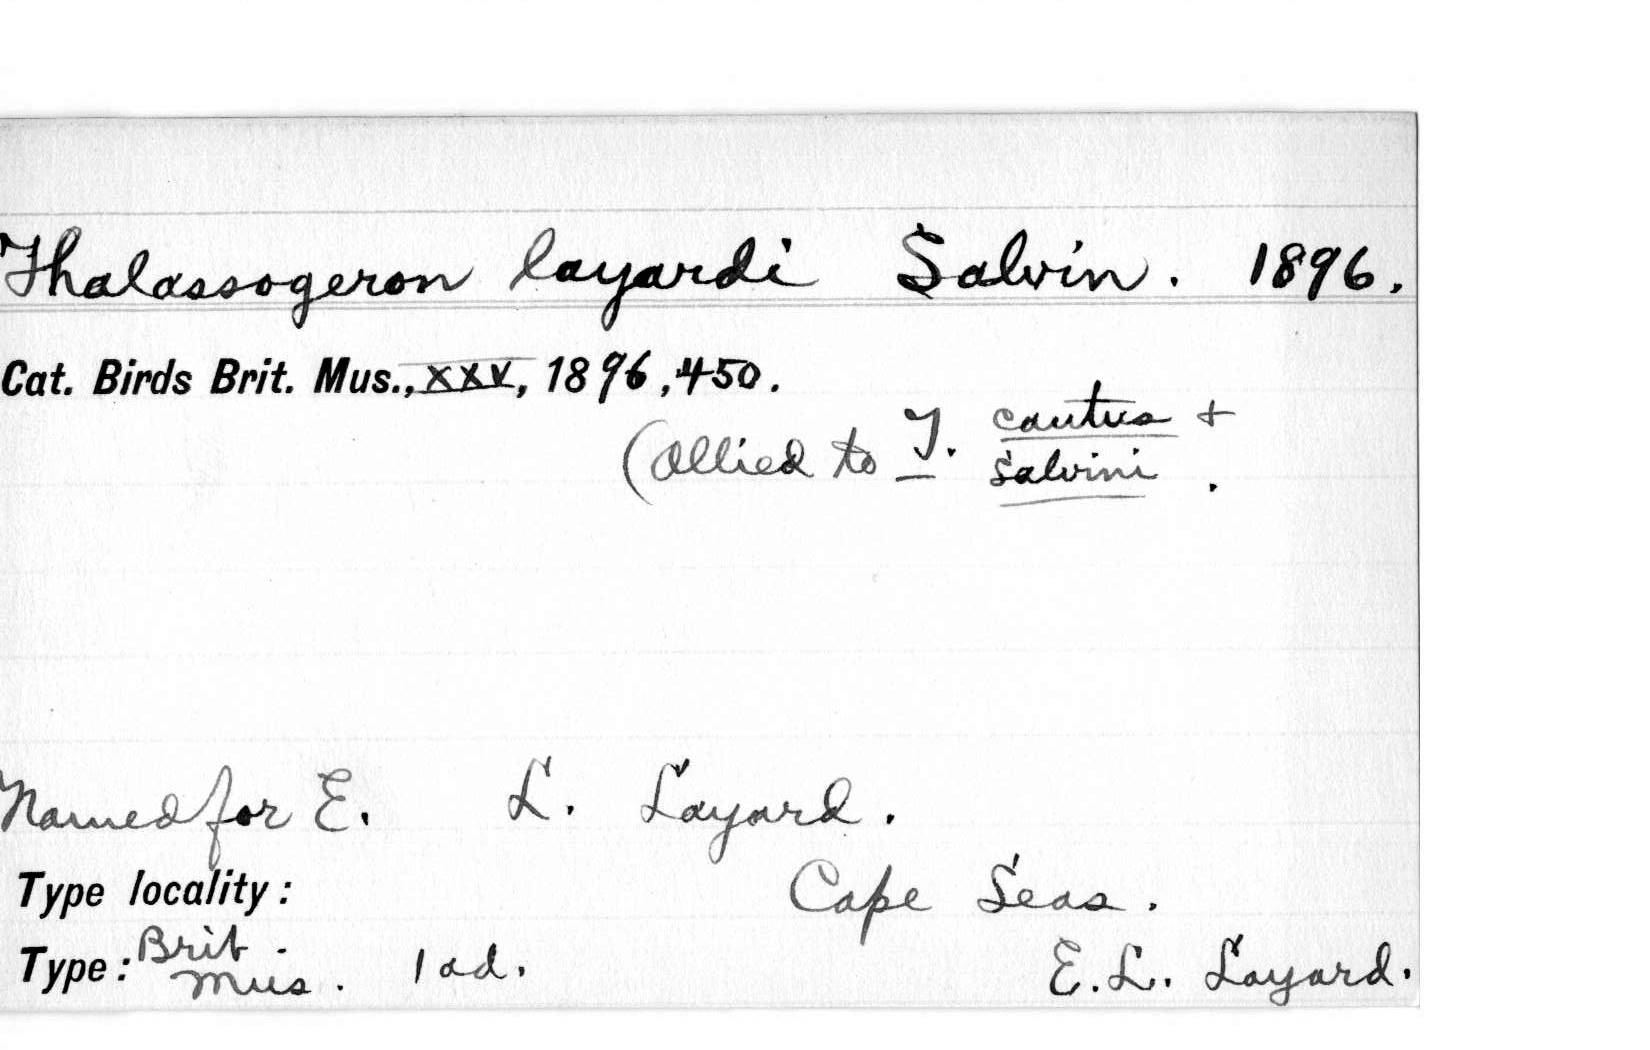 Thalassogeron layardi Salvin. 1896.
Cat. Birds Brit. Mus., XXV, 1896, 450.
(Allied to T. cautus +
salvini.
Named for E. L. Layard.
Type locality: Cape Seas.
Type: Brit. Mus. 1 ad. E. L. Layard.